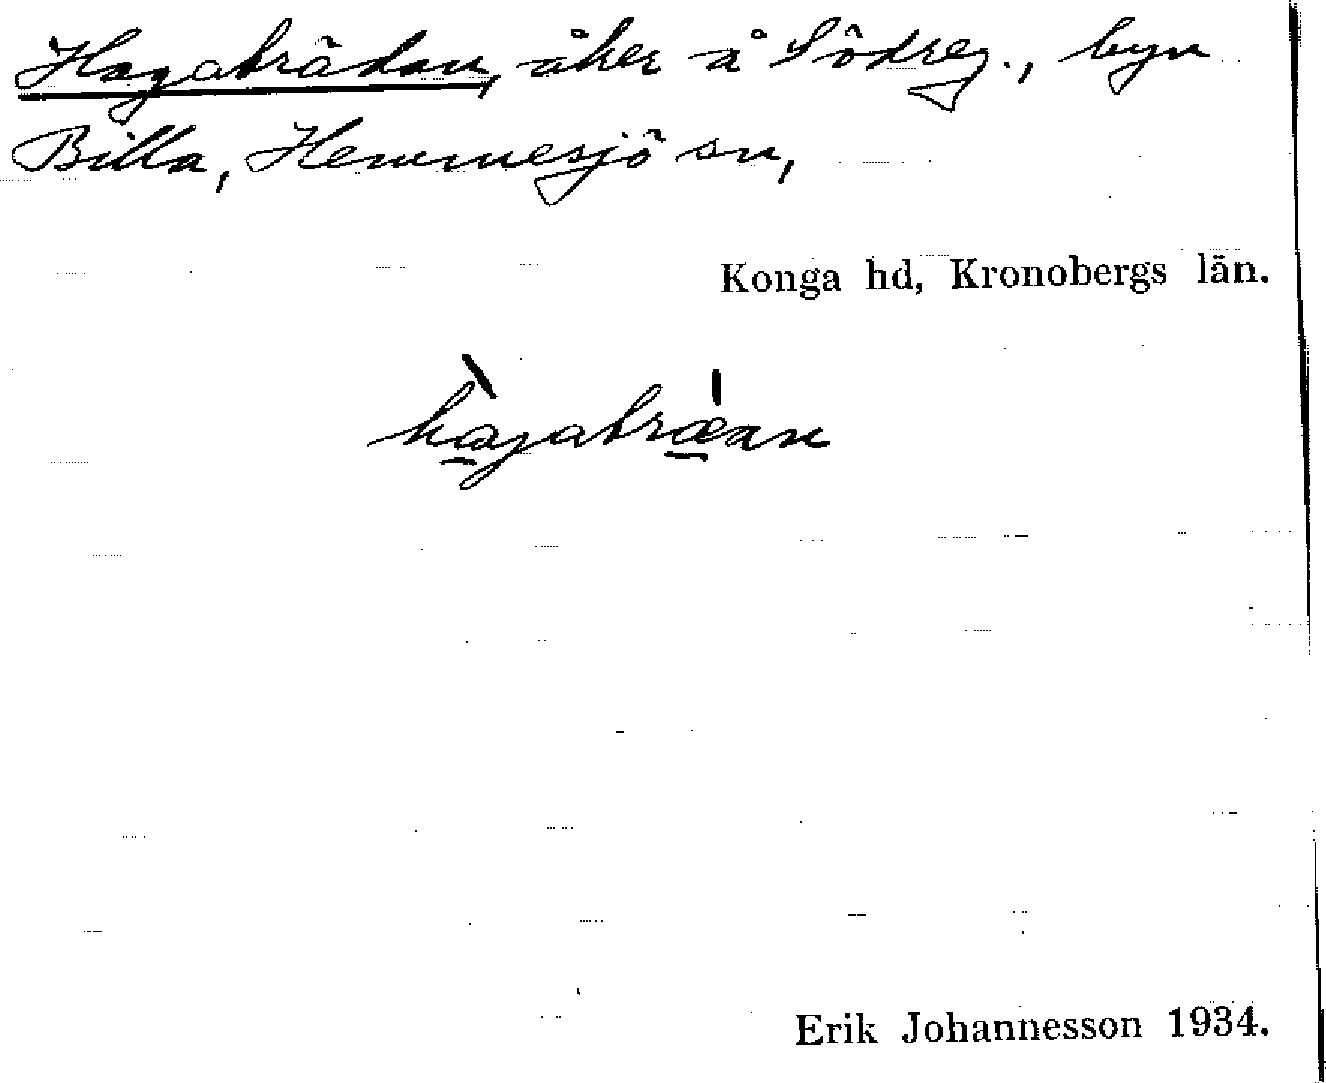 Hagabrädan, åker å Södreg., byn
Billa, Hemmesjö sn,
Konga hd, Kronobergs län.
hàgabræ̍an
Erik Johannesson 1934.